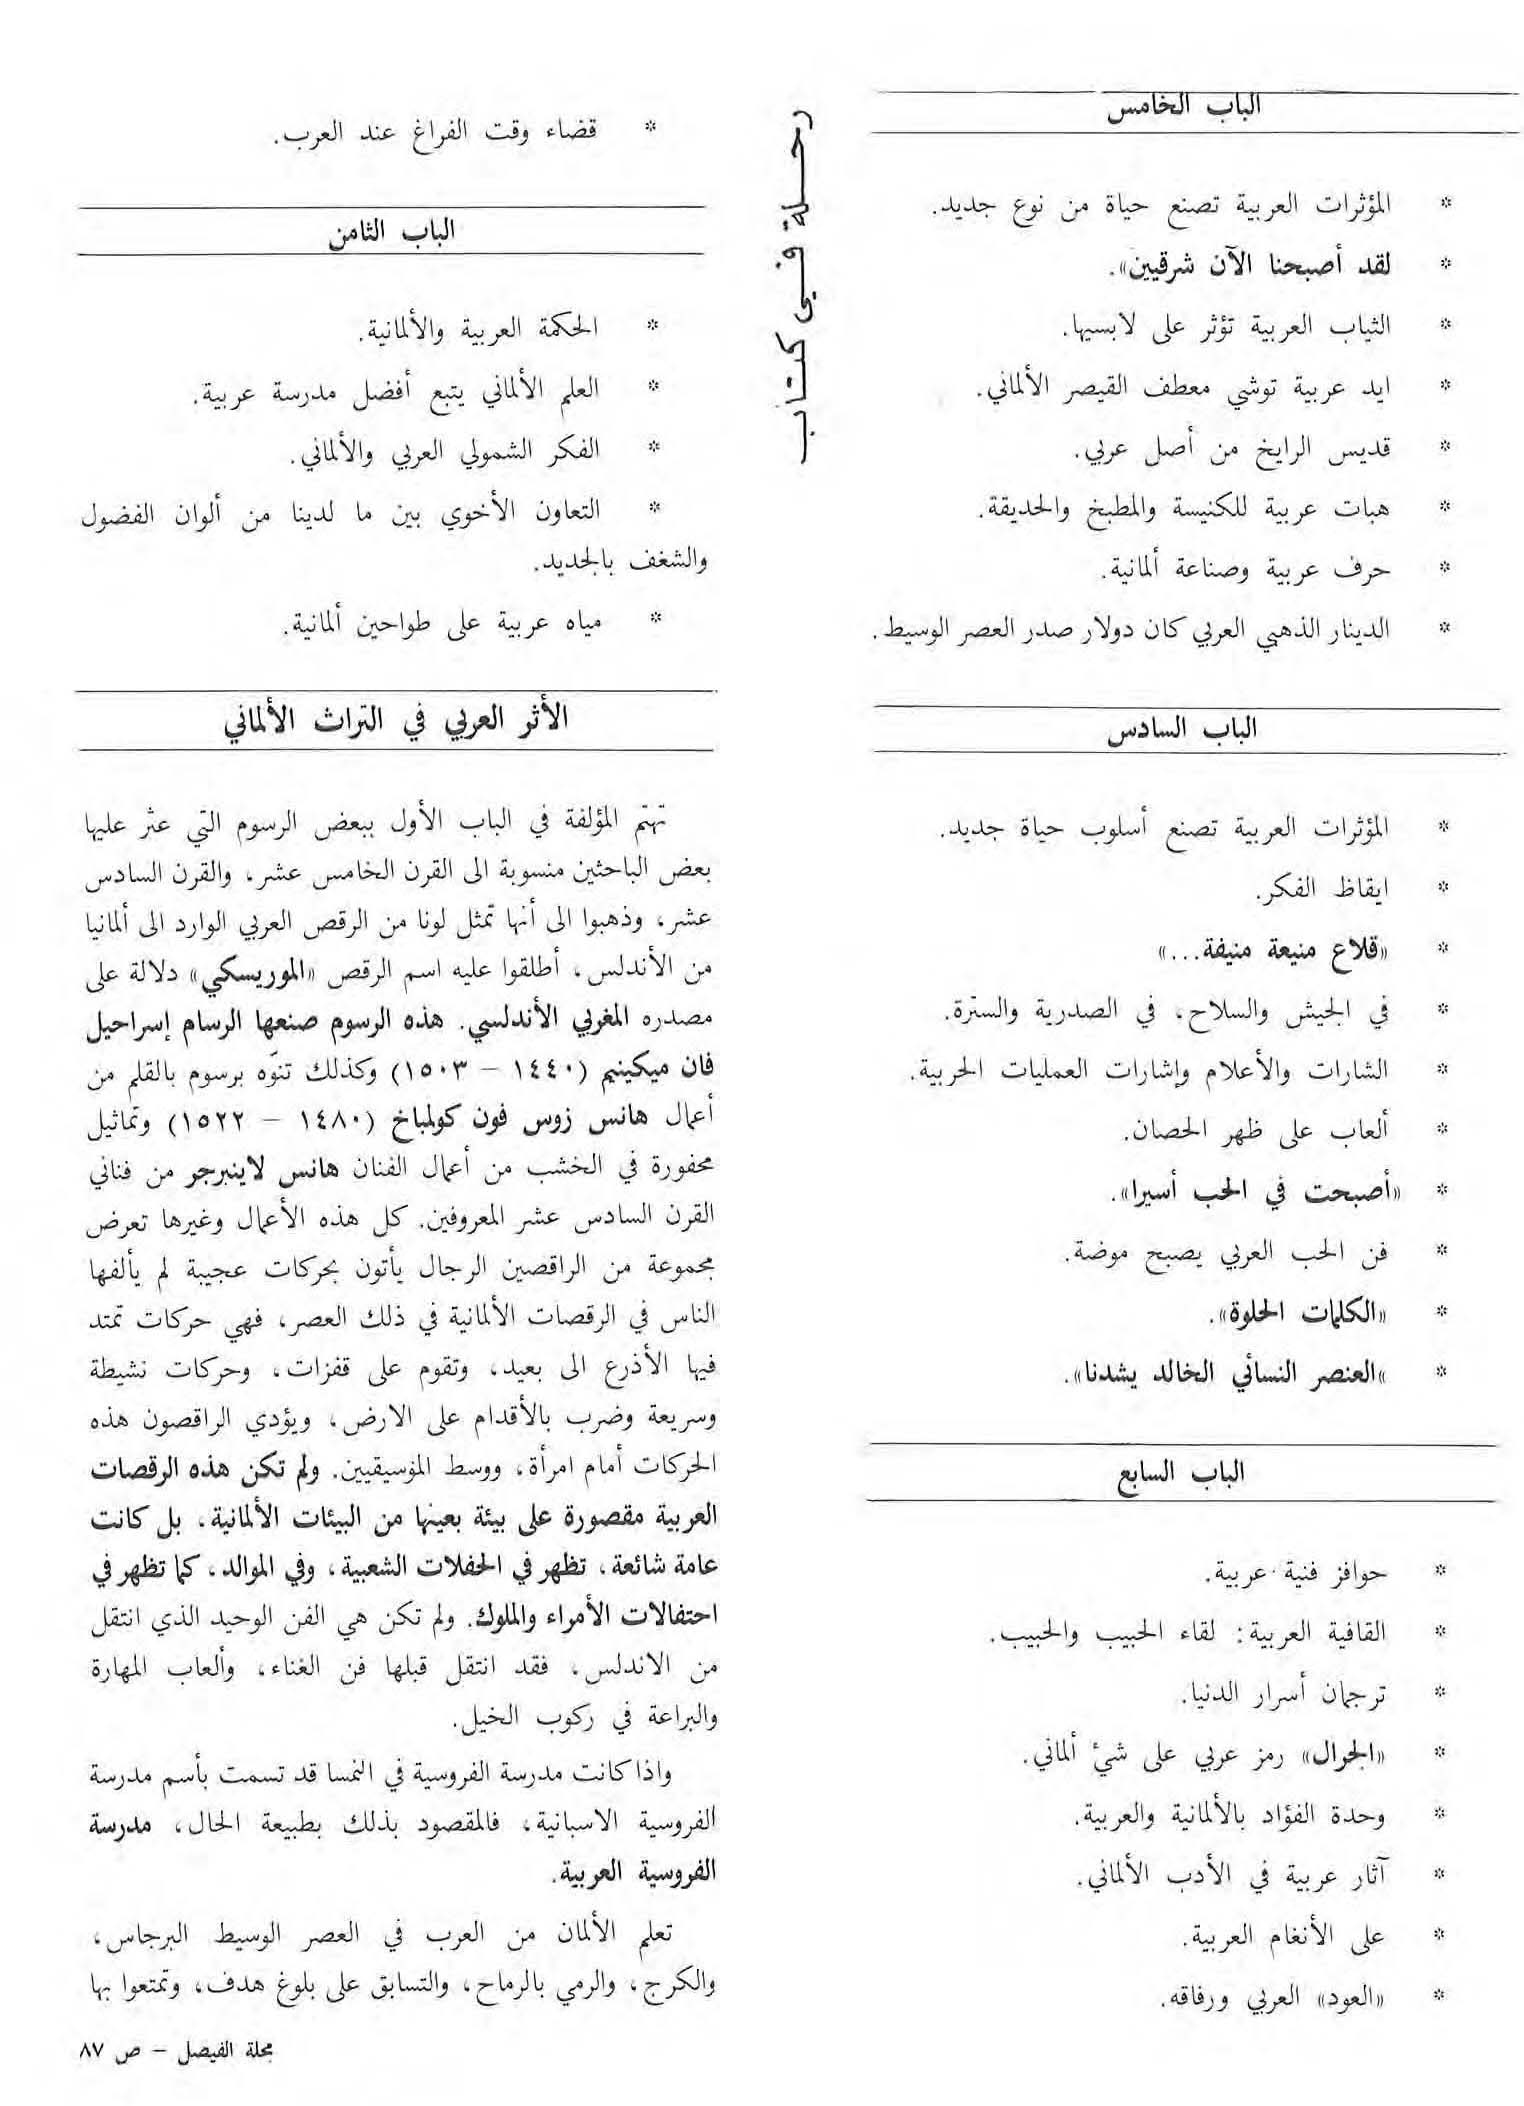 الباب الخامس
* المؤثرات العربية تصنع حياة من نوع جديد.
* لقد أصبحنا الآن شرقيين».
* الثياب العربية تؤثر على لابسيها.
* ايد عربية توشي معطف القيصر الألماني.
* قديس الرايخ من أصل عربي.
* هبات عربية للكنيسة والمطبخ والحديقة.
* حرف عربية وصناعة ألمانية.
* الدينار الذهبي العربي كان دولار صدر العصر الوسيط.
الباب السادس
* المؤثرات العربية تصنع أسلوب حياة جديد.
* ايقاظ الفكر.
* «قلاع منيعة منيفة...»
* في الجيش والسلاح، في الصدرية والسترة.
* الشارات والأعلام وإشارات العمليات الحربية.
* ألعاب على ظهر الحصان.
* «أصبحت في الحب أسيرا».
* فن الحب العربي يصبح موضة.
* «الكلمات الحلوة».
* «العنصر النسائي الخالد يشدنا».
الباب السابع
* حوافز فنية عربية.
* القافية العربية: لقاء الحبيب والحبيب.
* ترجمان أسرار الدنيا.
* «الجرال» رمز عربي على شئ ألماني.
* وحدة الفؤاد بالألمانية والعربية.
* آثار عربية في الأدب الألماني.
* على الأنغام العربية.
* «العود» العربي ورفاقه.
رحلة في كتاب
* قضاء وقت الفراغ عند العرب.
الباب الثامن
* الحكمة العربية والألمانية.
* العلم الألماني يتبع أفضل مدرسة عربية.
* الفكر الشمولي العربي والألماني.
* التعاون الأخوي بين ما لدينا من ألوان الفضول
والشغف بالجديد.
* مياه عربية على طواحين ألمانية.
الأثر العربي في التراث الألماني
تهتم المؤلفة في الباب الأول ببعض الرسوم التي عثر عليها
بعض الباحثين منسوبة الى القرن الخامس عشر، والقرن السادس
عشر، وذهبوا الى أنها تمثل لونا من الرقص العربي الوارد الى ألمانيا
من الأندلس، أطلقوا عليه اسم الرقص «الموريسكي» دلالة على
مصدره المغربي الأندلسي. هذه الرسوم صنعها الرسام إسراحيل
فان ميكينيم (١٤٤٠ – ١٥٠٣) وكذلك تنوّه برسوم بالقلم من
أعمال هانس زوس فون كولمباخ (١٤٨٠ – ١٥٢٢) وتماثيل
محفورة في الخشب من أعمال الفنان هانس لاينبرجر من فناني
القرن السادس عشر المعروفين. كل هذه الأعمال وغيرها تعرض
مجموعة من الراقصين الرجال يأتون بحركات عجيبة لم يألفها
الناس في الرقصات الألمانية في ذلك العصر، فهي حركات تمتد
فيها الأذرع الى بعيد، وتقوم على قفزات، وحركات نشيطة
وسريعة وضرب بالأقدام على الارض، ويؤدي الراقصون هذه
الحركات أمام امرأة، ووسط المؤسيقيين. ولم تكن هذه الرقصات
العربية مقصورة على بيئة بعينها من البيئات الألمانية، بل كانت
عامة شائعة، تظهر في الحفلات الشعبية، وفي الموالد، كما تظهر في
احتفالات الأمراء والملوك. ولم تكن هي الفن الوحيد الذي انتقل
من الاندلس، فقد انتقل قبلها فن الغناء، وألعاب المهارة
والبراعة في ركوب الخيل.
واذا كانت مدرسة الفروسية في النمسا قد تسمت بأسم مدرسة
الفروسية الاسبانية، فالمقصود بذلك بطبيعة الحال، مدرسة
الفروسية العربية.
تعلم الألمان من العرب في العصر الوسيط البرجاس،
والكرج، والرمي بالرماح، والتسابق على بلوغ هدف، وتمتعوا بها
مجلة الفيصل – ص ٨٧